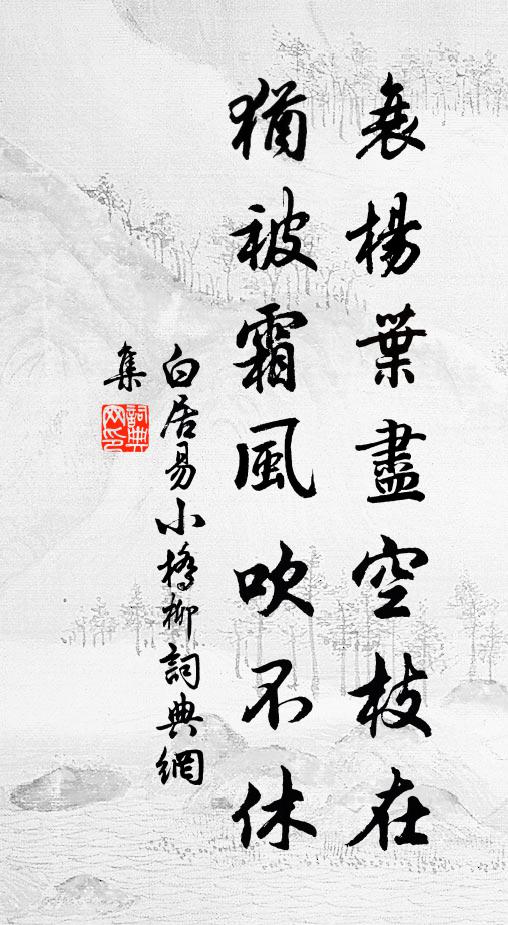 衰楊葉盡空枝在
猶被霜風吹不休
白居易小橋柳詞典網
集
詞典网印